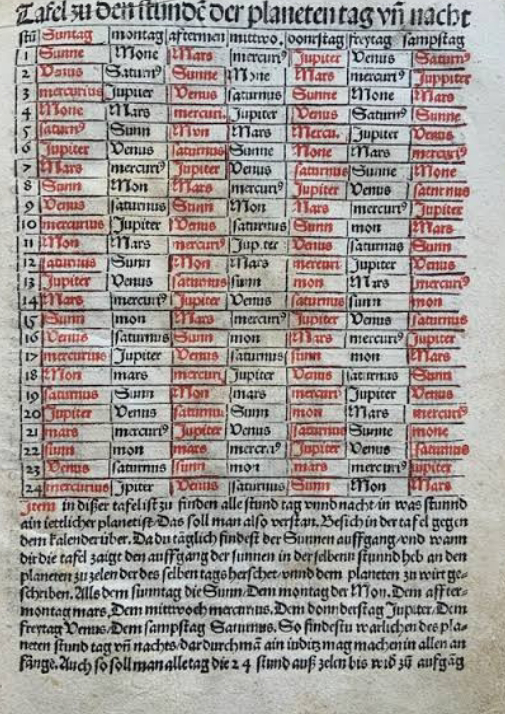 Tafel zu den stundē der planeten tag vñ nacht
stū Suntag montag aftermen mittwo. donrstag freytag sampstag
1 Sunne Mone Mars mercurꝰ Jupiter Venus Saturnꝰ
2 Venus Saturnꝰ Sunne Mone Mars mercurꝰ Juppiter
3 mercurius Jupiter Venus saturnus Sunne Mone Mars
4 Mone Mars mercuri. Jupiter Venus Saturnꝰ Sunne
5 saturnꝰ Sunn Mon Mars Mercu. Jupiter Venus
6 Jupiter Venus saturnus Sunne Mone Mars mercurꝰ
7 Mars mercurꝰ Jupiter Venus saturnus Sunne Mone
8 Sunn Mon Mars mercurꝰ Jupiter Venus saturnus
9 Venus saturnus Sunn Mon Mars mercurꝰ Jupiter
10 mercurius Jupiter Venus saturnus Sunn mon Mars
11 Mon Mars mercurꝰ Jupiter Venus saturnus Sunn
12 saturnus Sunn Mon Mars mercuri Jupiter Venus
13 Jupiter Venus saturnus sunn mon Mars mercurꝰ
14 Mars mercurꝰ Jupiter Venus saturnus sunn mon
15 Sunn mon Mars mercurꝰ Jupiter Venus saturnus
16 Venus saturnus Sunn mon Mars mercurꝰ Jupiter
17 mercurius Jupiter Venus saturnus sunn mon Mars
18 Mon mars mercurj Jupiter Venus saturnus Sunn
19 saturnus Sunn Mon mars mercurj Jupiter Venus
20 Jupiter Venus saturnu Sunn mon Mars mercurꝰ
21 mars mercurꝰ Jupiter Venus saturnus Sunne mone
22 sunn mon mars mercurꝰ Jupiter Venus saturnus
23 Venus saturnus sunn mon mars mercurꝰ jupiter
24 mercurius Jpiter Venus saturnus Sunn Mon Mars
Item in dißer tafel ist zu finden alle stund tag vnnd nacht in was stunnd
ain ietlicher planet ist. Das soll man also verstan. Besich in der tafel gegen
dem kalender über. Da du täglich findest der Sunnen auffgang/vnd wann
dir die tafel zaigt den auffgang der sunnen in der selbenn stunnd heb an den
planeten zu zelen der des selben tags herschet/vnnd dem planeten zu wirt ge-
schriben. Alls dem sunntag die Sunn. Dem montag der Mon. Dem after-
montag mars. Dem mittwoch mercurius. Dem donderstag Jupiter. Dem
freytag Venus. Dem sampstag Saturnus. So findestu warlichen des pla-
neten stund tag vñ nachts/dar durch mā ain iuditz mag machen in allen an
fänge. Auch so soll man alle tag die 24 stund auß zelen bis wid zū aufgāg